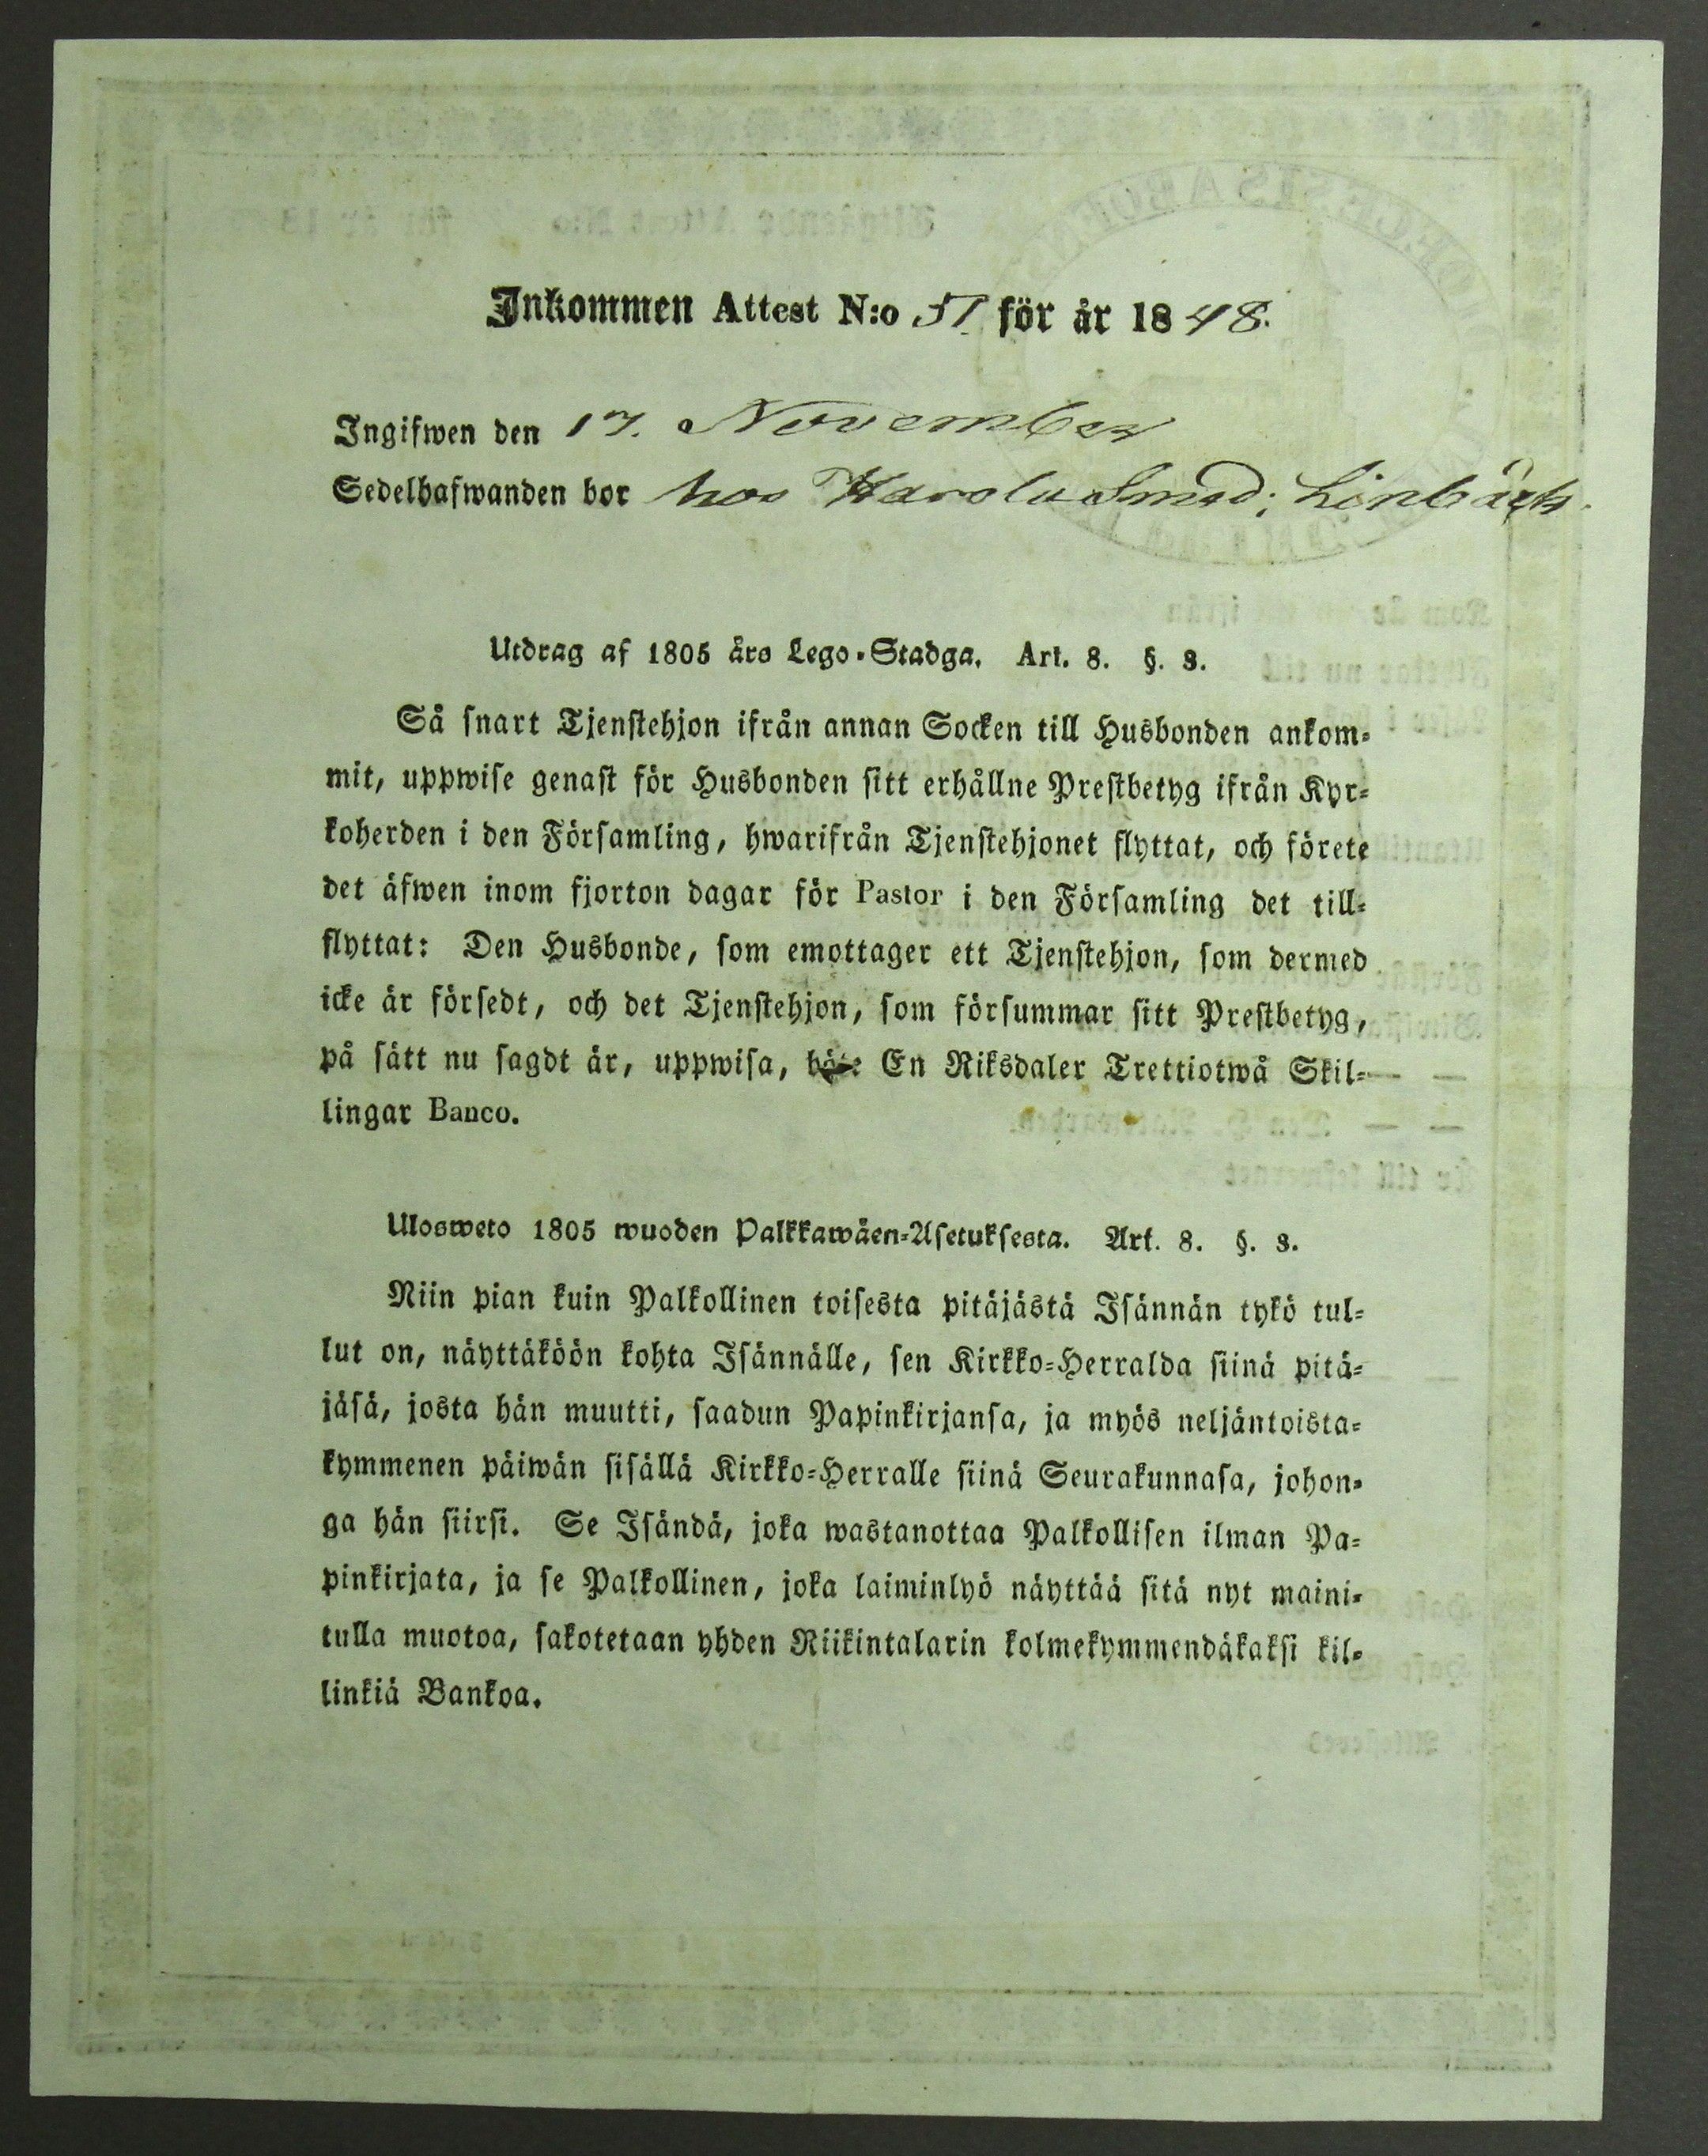 Inkommen Attest N:o 51 för år 1848.
Ingifwen den 17. November
Sedelhafwanden bor hos Karola Smed; Linbäck.
Utdrag af 1805 års Lego-Stadga. Art. 8. §. 3.
Så snart Tjenstehjon ifrån annan Socken till Husbonden ankom-
mit, uppwise genast för Husbonden sitt erhållne Prestbetyg ifrån Kyr-
koherden i den Församling, hwarifrån Tjenstehjonet flyttat, och förete
det äfwen inom fjorton dagar för Pastor i den Församling det till-
flyttat: Den Husbonde, som emottager ett Tjenstehjon, som dermed
icke är försedt, och det Tjenstehjon, som försummar sitt Prestbetyg,
på sätt nu sagdt är, uppwisa, böte En Riksdaler Trettiotwå Skil-
lingar Banco.
Ulosweto 1805 wuoden Palkkawäen-Asetuksesta. Art. 8. §. 3.
Niin pian kuin Palkollinen toisesta pitäjästä Isännän tykö tul-
lut on, näyttäköön kohta Isännälle, sen Kirkko-Herralda siinä pitä-
jäsä, josta hän muutti, saadun Papinkirjansa, ja myös neljäntoista-
kymmenen päiwän sisällä Kirkko-Herralle siinä Seurakunnasa, johon-
ga hän siirsi. Se Isändä, joka wastanottaa Palkollisen ilman Pa-
pinkirjata, ja se Palkollinen, joka laiminlyö näyttää sitä nyt maini-
tulla muotoa, sakotetaan yhden Riikintalarin kolmekymmendäkaksi kil-
linkiä Bankoa.